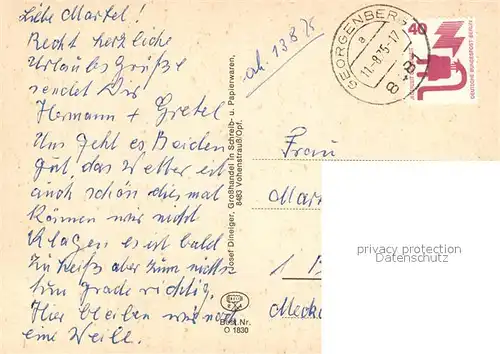 Liebe Martel!
Recht herzliche
Urlaubs Grüße
sendet Dir
Hermann + Gretel
Uns geht es Beiden
gut, das Wetter ist
auch schön diesmal
können wir nicht
Klagen es ist bald
zu heiß aber zum nichts
tun grade richtig.
Hier bleiben wir noch
eine Weile.
ah. 13.8.75
Josef Dineiger, Großhandel in Schreib- u. Papierwaren,
8483 Vohenstrauß/Opf.
Best.Nr.
O 1830
GEORGENBERG
a
11.-8.75-17
8481
40
DEUTSCHE BUNDESPOST BERLIN
Frau
1
privacy protection
Datenschutz